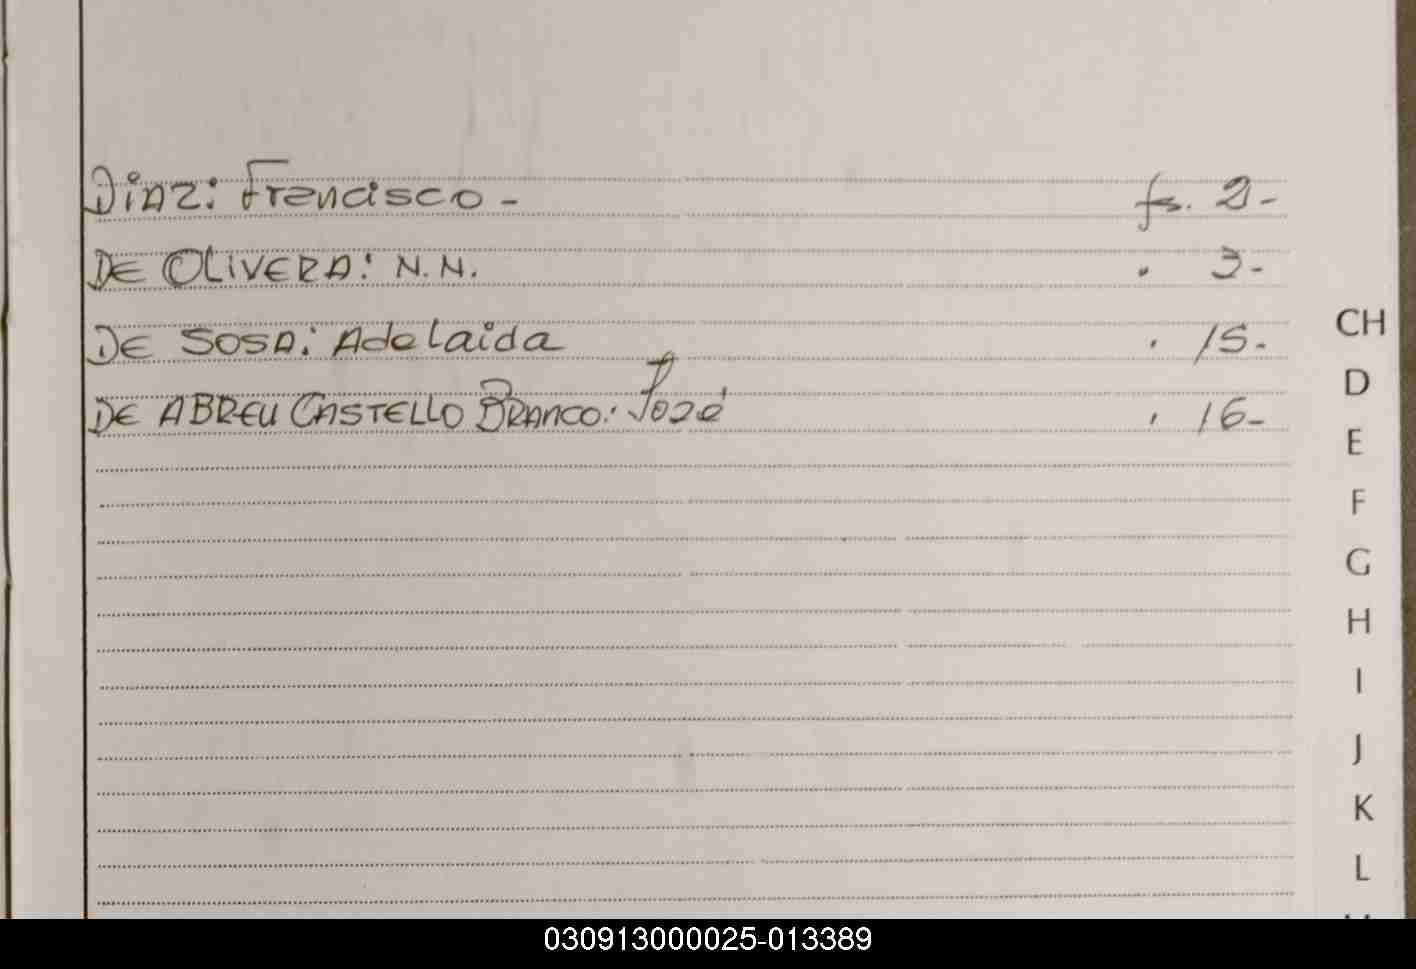 DiAZ: Francisco -
fs. 2-
DE OLIVERA: N.N.
" 3-
DE SOSA: Adelaida
" 15-
DE ABREU CASTELLO BRANCO: José
" 16-
CH
D
E
F
G
H
I
J
K
L
030913000025-013389